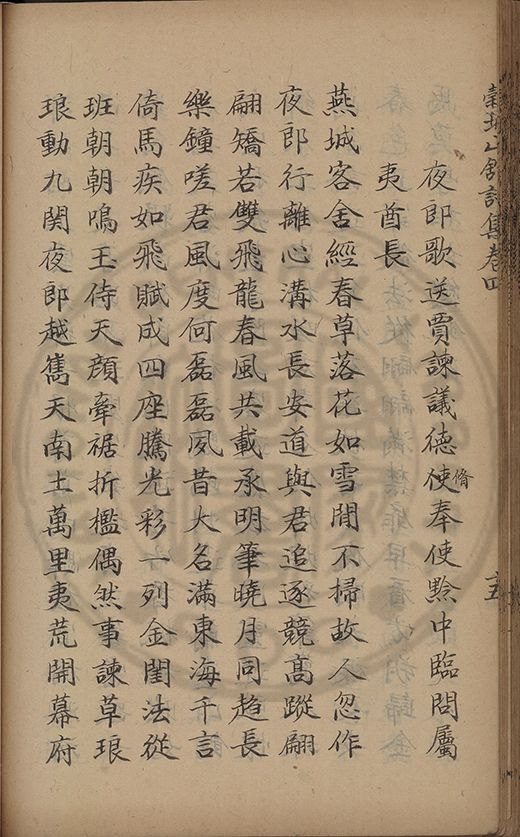 穀城山舘詩集卷四
五
夜郎歌送賈諫議德使奉使黔中臨問屬
脩
夷酋長
燕城客舍經春草落花如雪閒不掃故人忽作
夜郎行離心溝水長安道與君追逐競高蹤翩
翩矯若雙飛龍春風共載承明筆曉月同趨長
樂鐘嗟君風度何磊磊夙昔大名滿東海千言
倚馬疾如飛賦成四座騰光彩一列金閨法從
班朝朝鳴玉侍天顏牽裾折檻偶然事諫草琅
琅動九関夜郎越雋天南土萬里夷荒開幕府